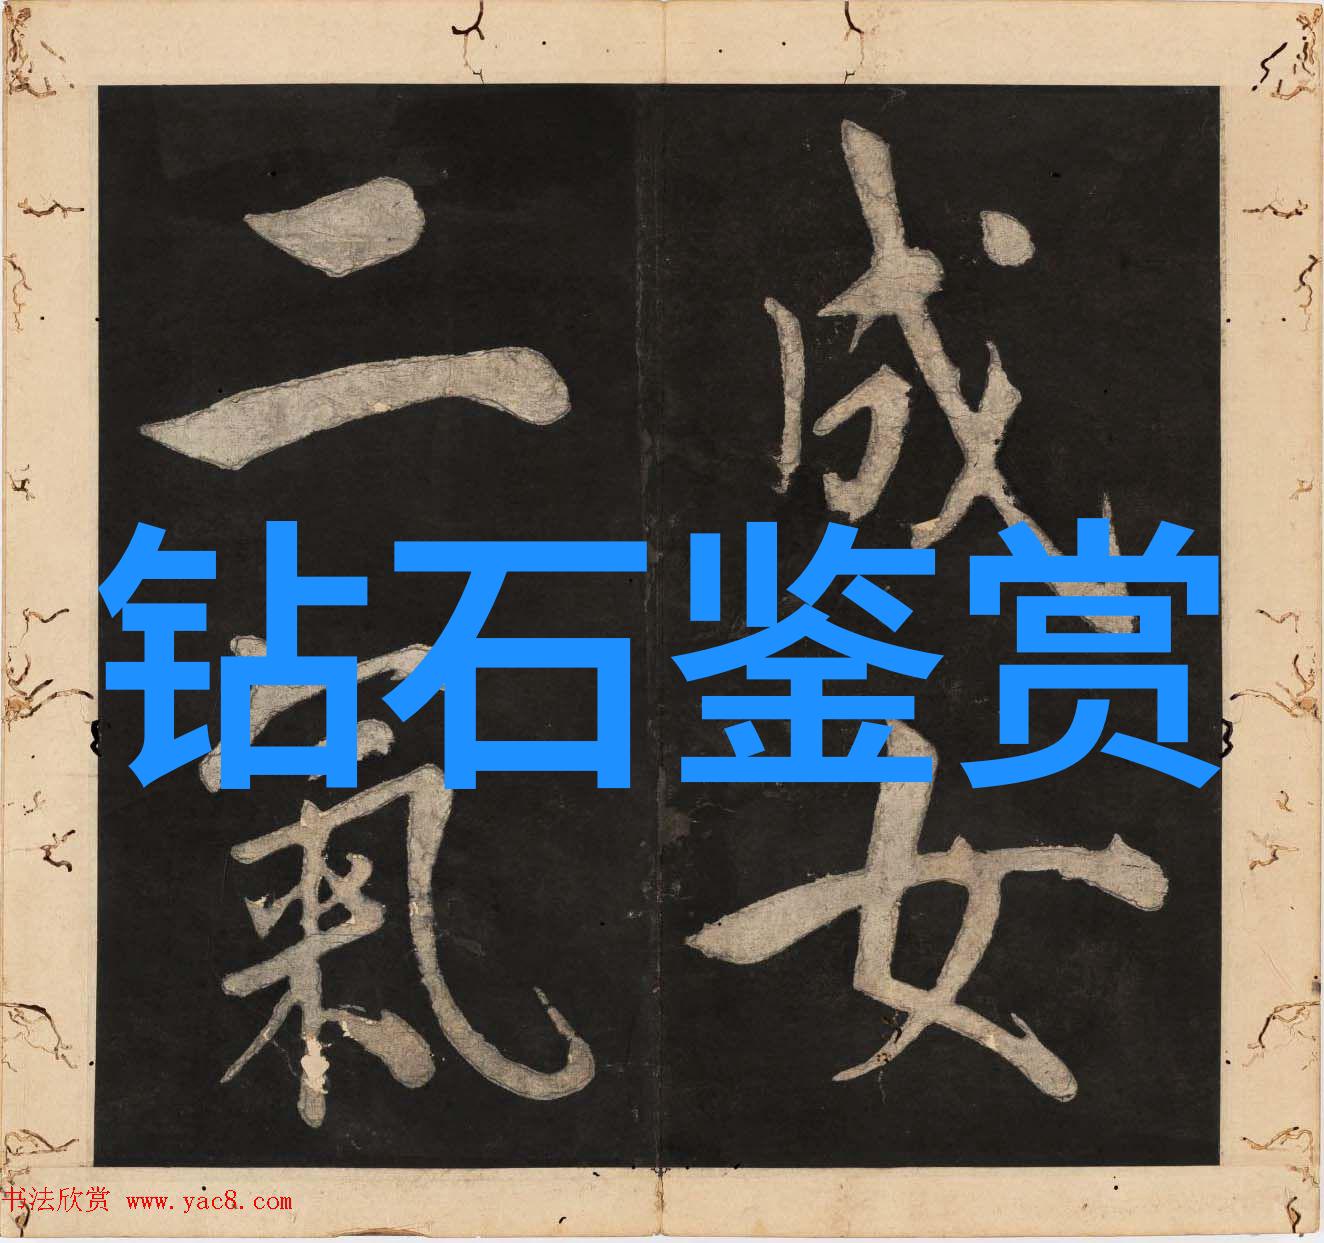 成女
二氣
钻石鉴赏
书法欣赏 www.yac8.com